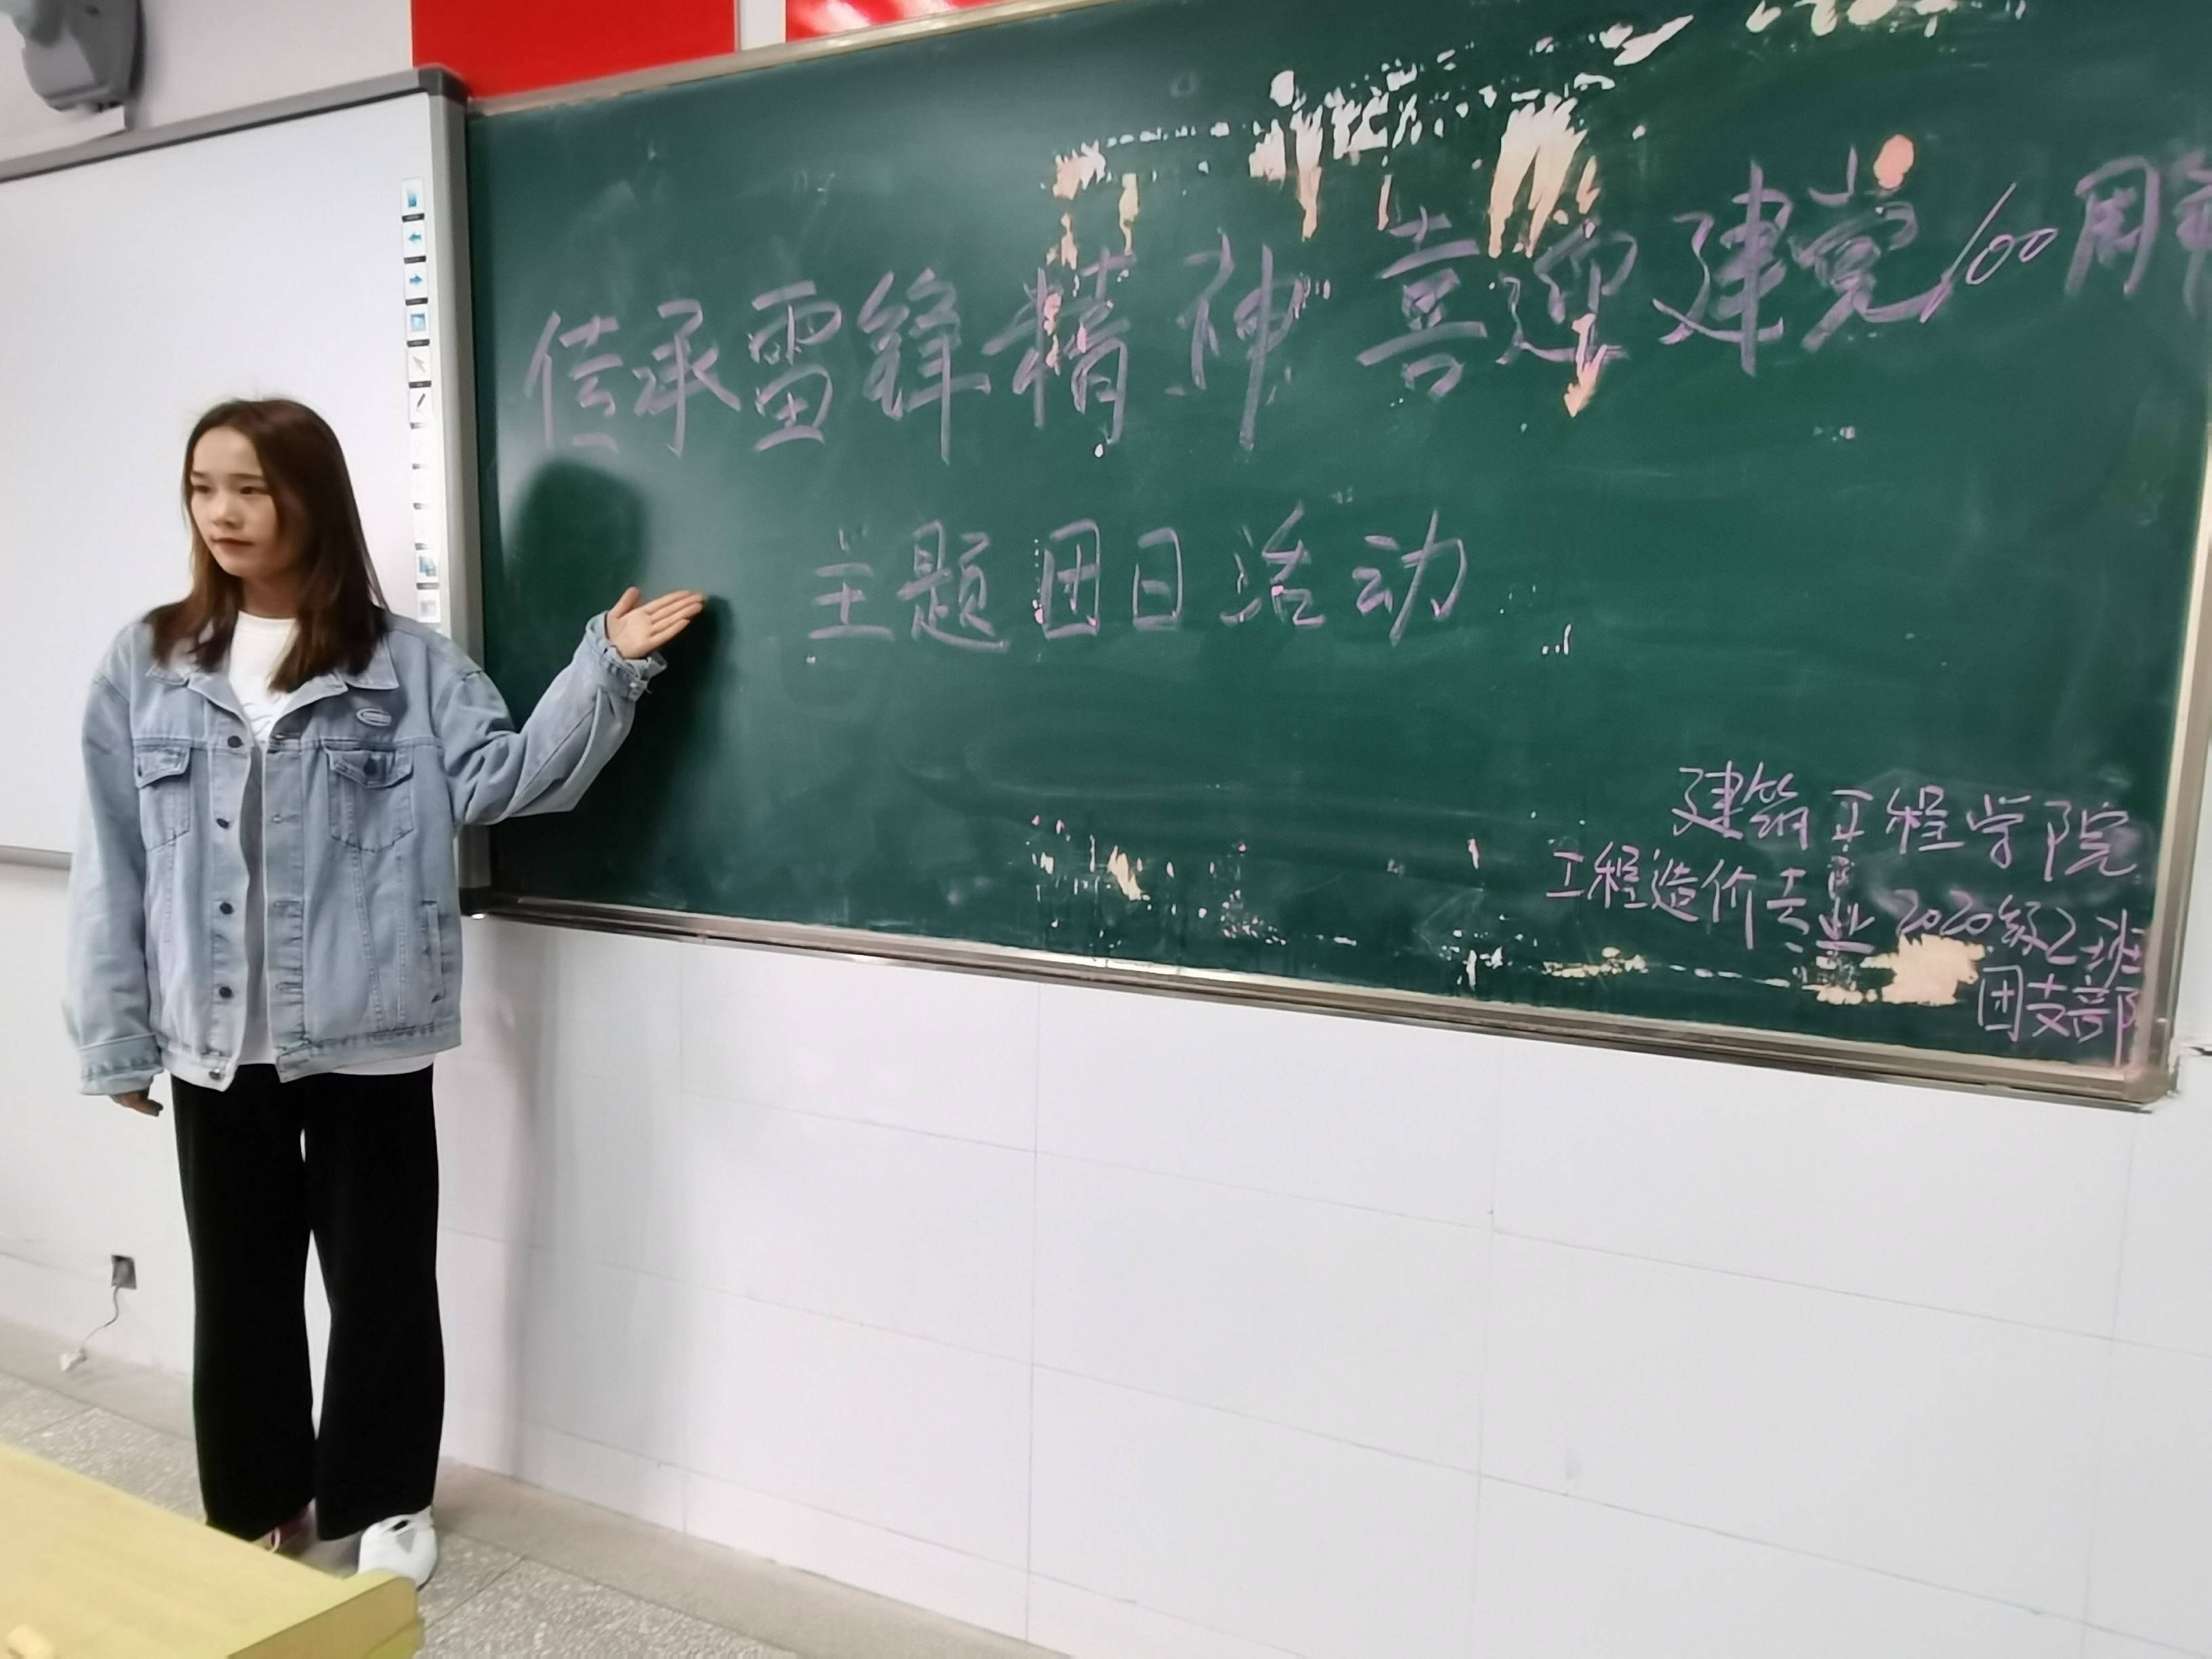 传承雷锋精神 喜迎建党100周年
主题团日活动
建筑工程学院
工程造价专业2020级2班
团支部